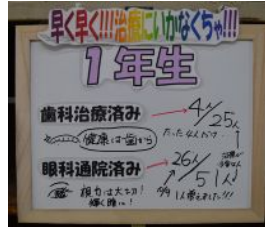 早く早く!!!治療にいかなくちゃ!!!
1年生
歯科治療済み → 4人/25人
健康は歯から
たった4人だけ…
眼科通院済み → 26人/51人
視力は大切!
輝く瞳に!
1人増えました!!!